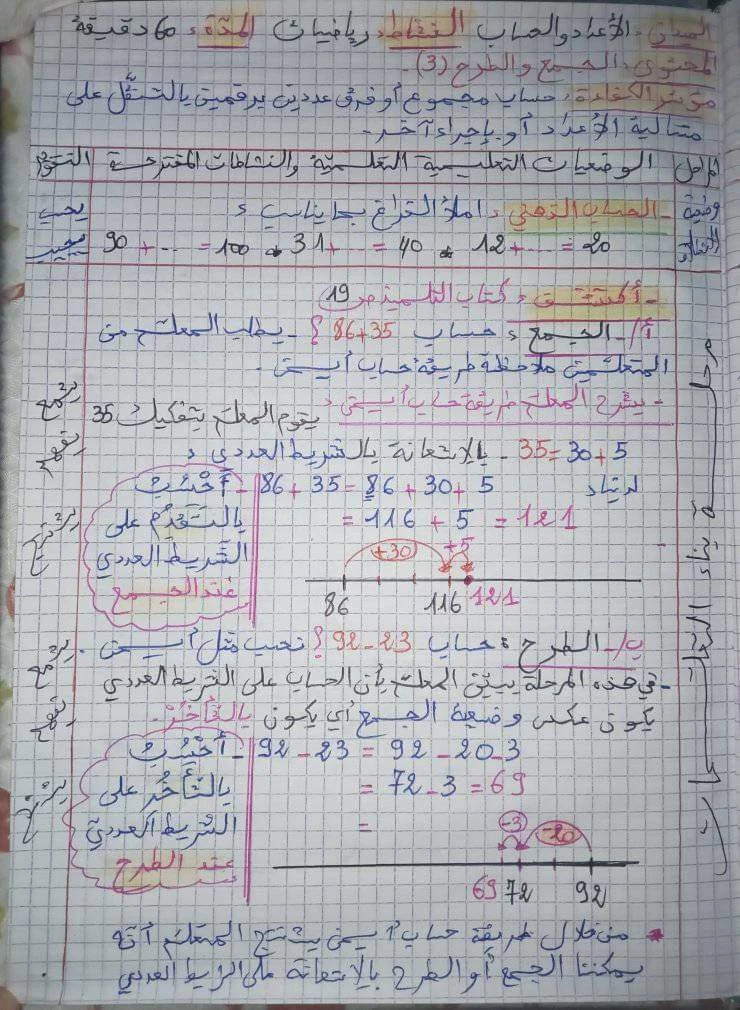 الميدان: الأعداد والحساب النشاط: رياضيات المدة: 60 دقيقة
المحتوى: الجمع والطرح (3).
مؤشر الكفاءة: حساب مجموع أو فرق عددين برقمين بالتنقّل على
متتالية الأعداد أو بإجراء آخر.
المراحل الوضعيات التعليمية التعلمية والنشاطات المقترحة التقويم
وضعية - الحساب الذهني: املأ الفراغ بما يناسب: يحسب
12+...=20 * 31+...=40 * 90+...=100 يجيب
- أكتشف: كتاب التلميذ ص 19
أ/- الجمع: حساب 86+35؟ - يطلب المعلم من
المتعلمين ملاحظة طريقة حساب أيمن.
- يشرح المعلم طريقة حساب أيمن: يسمع
يقوم المعلم بتفكيك 35
35=30+5 - بالاستعانة بالشريط العددي: يفهم
لدينا 86+35=86+30+5
=116+5=121
- أحْسُبُ
بالتَّقَدُّمِ على
الشريط العددي
عند الجمع
+30 +5
86 116 121
ب/- الطرح: حساب 92-23؟ نحسب مثل أيمن. يسمع
- في هذه المرحلة يبيّن المعلم بأن الحساب على الشريط العددي
يكون عكس وضعية الجمع أي يكون بالتأخّر. يفهم
92-23=92-20-3
=72-3=69
=
- أحْسُبُ
بالتَّأَخُّرِ على
الشريط العددي
عند الطرح
-3 -20
69 72 92
* من خلال طريقة حساب أيمن يستنتج المتعلم أنه
يمكننا الجمع أو الطرح بالاستعانة على الشريط العددي